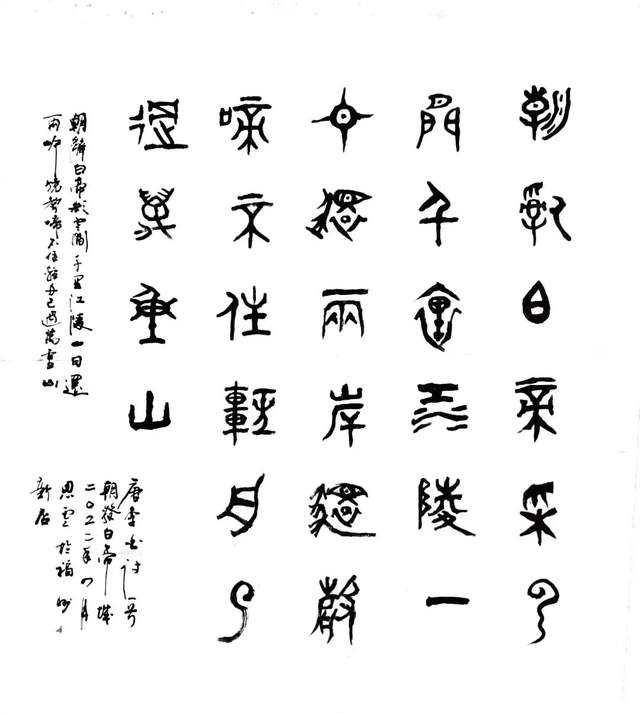 朝辭白帝采云
間千里江陵一
日還兩岸猿聲
啼不住輕舟已
過萬重山
朝辭白帝彩雲間千里江陵一日還
兩岸猿聲啼不住輕舟已過萬重山
唐李白詩一首
朝發白帝城
二〇二二年四月
思雲於福州
新店